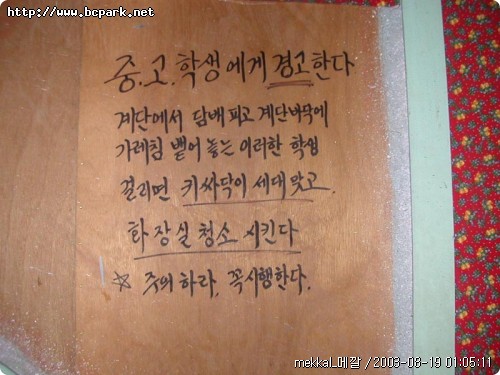 http://www.bcpark.net
중.고.학생에게 경고한다
계단에서 담배 피고 계단바닥에
가레침 뱉어 놓는 이러한 학생
걸리면 키싸닥이 세대 맞고.
화장실 청소 시킨다
☆ 주의 하라. 꼭시행한다.
mekkal_메깔 / 2003-08-19 01:05:11